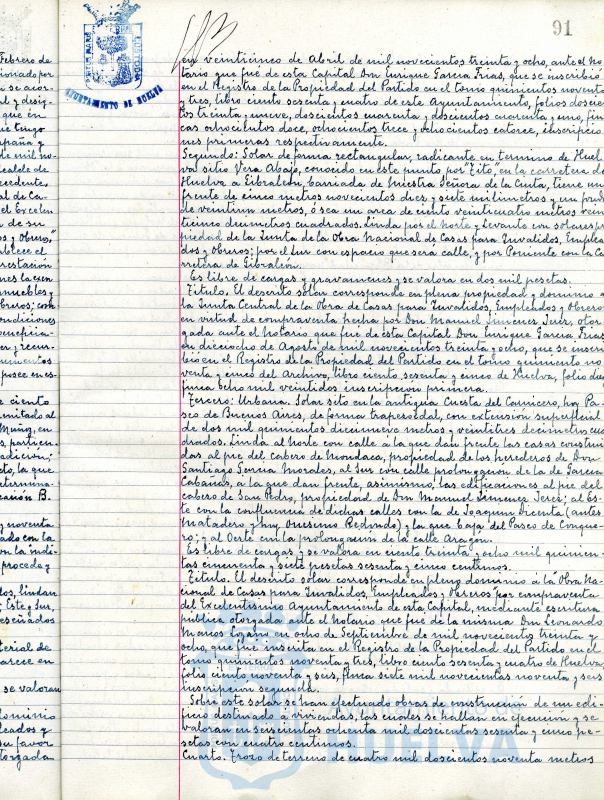 91
en veinticinco de Abril de mil novecientos treinta y ocho, ante el No-
tario que fué de esta Capital Don Enrique Garcia Trias, que se inscribio
en el Registro de la Propiedad del Partido en el tomo quinientos noventa
y tres, libro ciento sesenta y cuatro de este Ayuntamiento, folios doscien
tos treinta y nueve, doscientos cuarenta y doscientos cuarenta y uno, fin
cas ochocientos doce, ochocientos trece y ochocientos catorce, inscripcio
nes primeras respectivamente.
Segundo: Solar de forma rectangular, radicante en termino de Huel
va sitio Vera Abajo, conocido en este punto por "Tito", en la carretera de
Huelva a Gibraleon, barriada de Nuestra Señora de la Cinta, tiene un
frente de cinco metros novecientos diez y siete milimetros y un fondo
de veintiun metros, ó sea un area de ciento veinticuatro metros vein
ticinco decimetros cuadrados. Linda por el Norte y Levante con solares pro
piedad de la Junta de la Obra Nacional de Casas para Invalidos, Emplea
dos y Obreros; por el Sur con espacio que sera calle, y por Poniente con la Ca
rretera de Gibraleon.
Es libre de cargas y gravamenes y se valora en dos mil pesetas.
Titulo. El descrito solar corresponde en plena propiedad y dominio a
la Junta Central de la Obra de Casas para Invalidos, Empleados y Obreros
en virtud de compraventa hecha por Don Manuel Jimenez Jerez, otor
gada ante el Notario que fué de esta Capital Don Enrique Garcia Trias
en dieciocho de Agosto de mil novecientos treinta y ocho, que se inscri
bió en el Registro de la Propiedad del Partido en el tomo quinientos no
venta y cinco del Archivo, libro ciento sesenta y cinco de Huelva, folio diez
finca ocho mil veintidos inscripcion primera.
Tercero: Urbana. Solar sito en la antigua Cuesta del Carnicero, hoy Pa-
seo de Buenos Aires, de forma trapezoidal, con extensión superficial
de dos mil quinientos diecinueve metros y veintitres decimetros cua
drados. Linda al Norte con calle á la que dan frente las casas construi
das al pie del Cabezo de Mondaca, propiedad de los herederos de Don
Santiago Garcia Morales, al Sur con calle prolongacion de la de Garcia
Cabañas, á la que dan frente, asimismo, las edificaciones al pie del
cabezo de San Pedro, propiedad de Don Manuel Jimenez Jerez; al Es-
te con la confluencia de dichas calles con la de Joaquin Dicenta (antes
Matadero y hoy, Onesimo Redondo) y la que baja del Paseo de Conque-
ro; y al Oeste con la prolongación de la calle Aragon.
Es libre de cargas y se valora en ciento treinta y ocho mil quinien
tas cincuenta y siete pesetas sesenta y cinco centimos.
Titulo. El descrito solar corresponde en pleno dominio á la Obra Na-
cional de Casas para Invalidos, Empleados y Obreros por compraventa
del Excelentisimo Ayuntamiento de esta Capital, mediante escritura
pública otorgada ante el Notario que fué de la misma Don Leonardo
en ocho de Septiembre de mil novecientos treinta y
ocho, que fué inscrita en el Registro de la Propiedad del Partido en el
tomo quinientos noventa y tres, libro ciento sesenta y cuatro de Huelva,
folio ciento noventa y seis, finca siete mil novecientas noventa y seis
inscripcion segunda.
Sobre este solar se han efectuado obras de construcción de un edi-
ficio destinado a viviendas, las cuales se hallan en ejecucion y se
valoran en seiscientas ochenta mil doscientas sesenta y cinco pe-
setas con cuatro centimos.
Cuarto. Trozo de terreno de cuatro mil doscientos noventa metros
AYUNTAMIENTO DE HUELVA
HUELVA